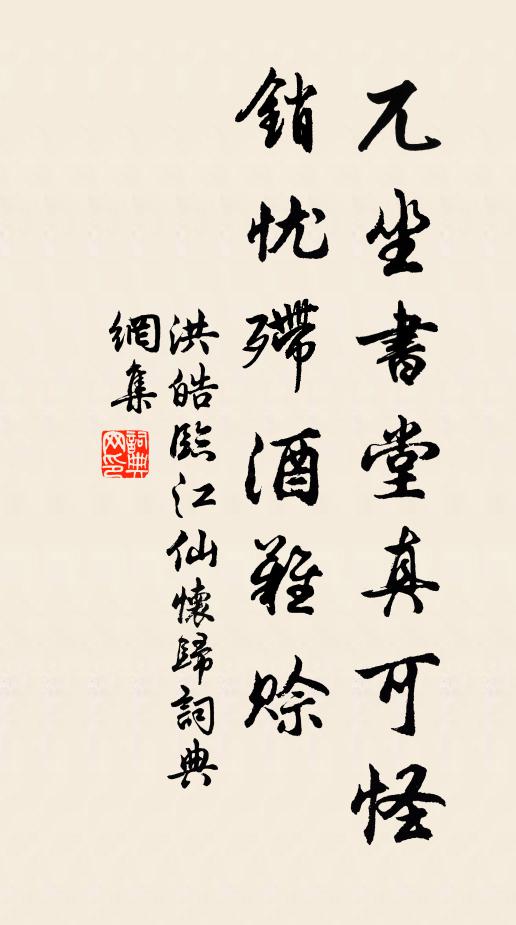 兀坐書堂真可怪
銷忧殢酒難賒
洪皓臨江仙懷歸詞典
網集
詞典
网印